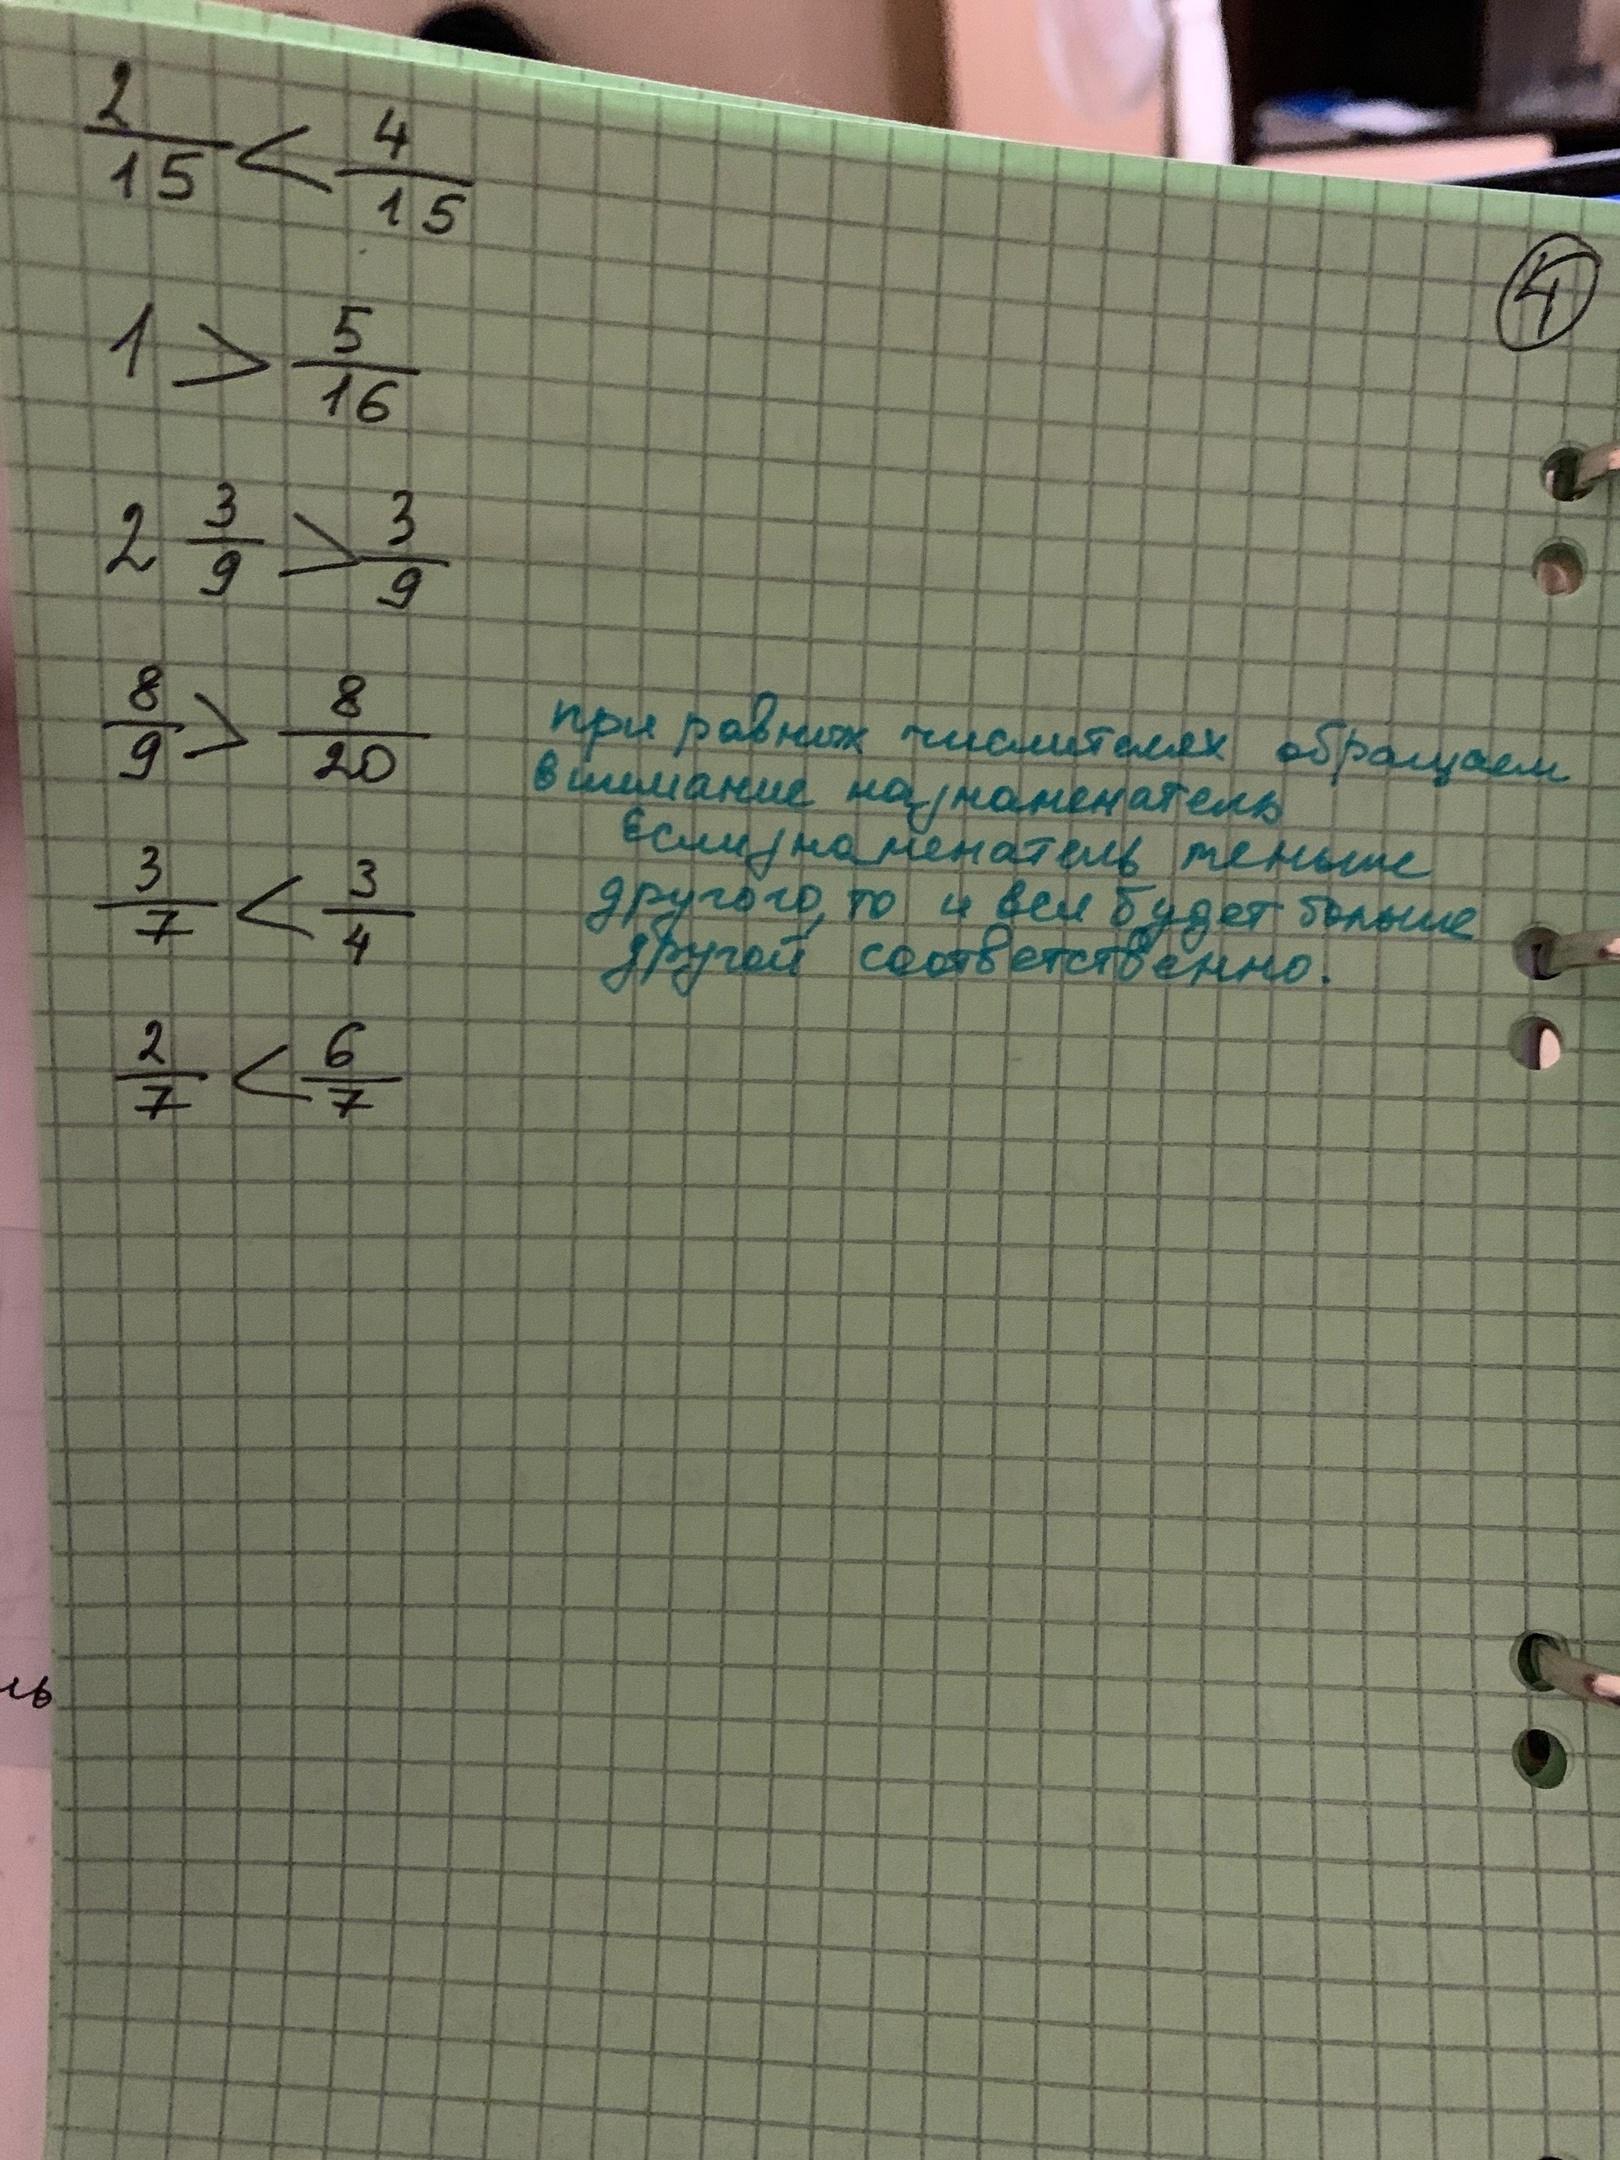 2/15 < 4/15
4
1 > 5/16
2 3/9 > 3/9
8/9 > 8/20
при равных числителях обращаем
внимание на знаменатель
Если знаменатель меньше
другого, то и вся будет больше
другой соответственно.
3/7 < 3/4
2/7 < 6/7
ль